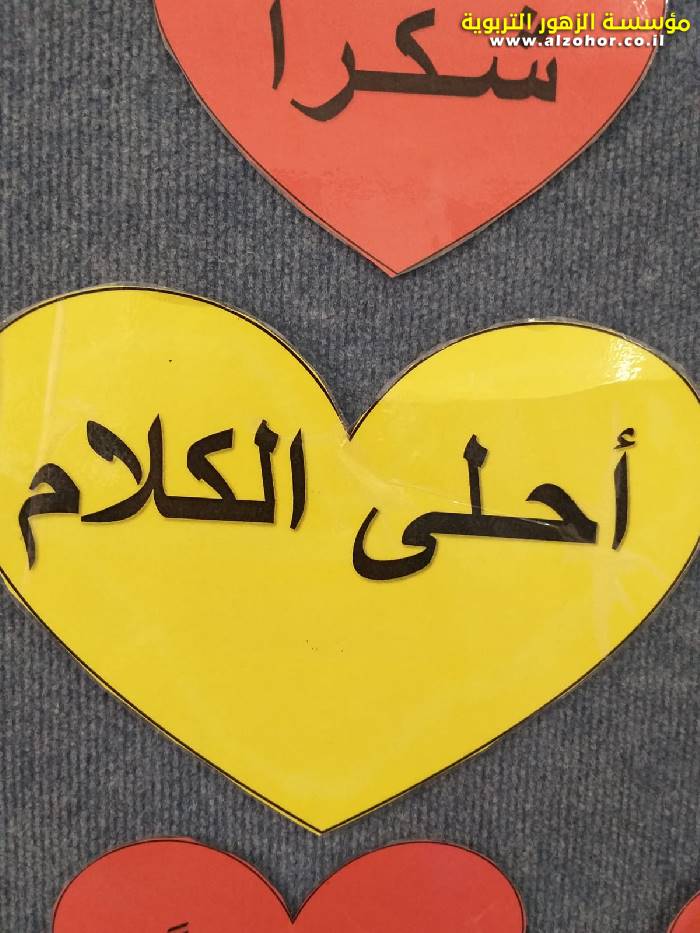 مؤسسة الزهور التربوية
www.alzohor.co.il
شكرا
أحلى الكلام